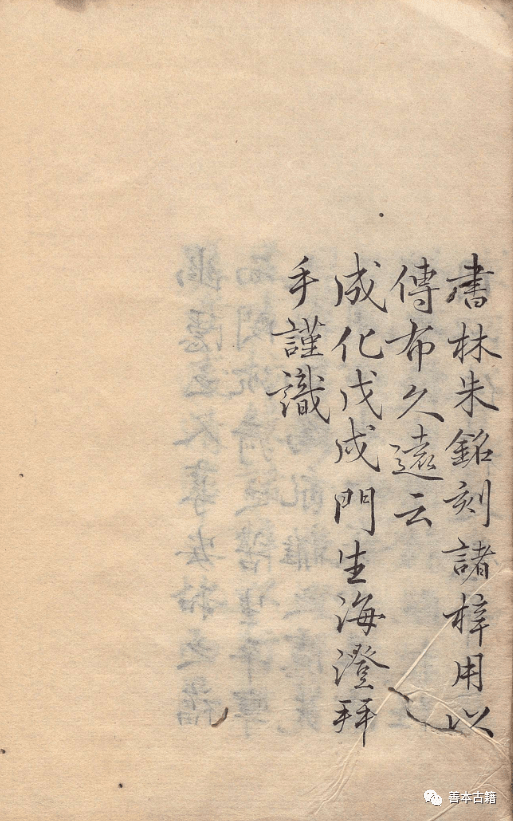 書林朱銘刻諸梓用以
傳布久遠云
成化戊戌門生海澄拜
手謹識
善本古籍